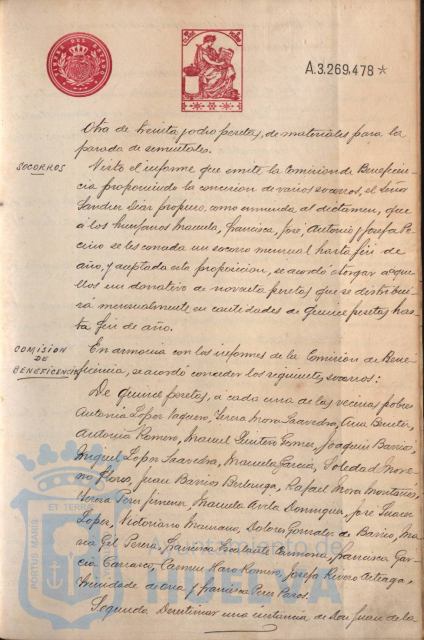 TIMBRE DEL ESTADO
A.3.269.478 *
Otra de treinta y ocho pesetas, de materiales para la
parada de sementales.
SOCORROS
Visto el informe que emite la Comision de Beneficen-
cia proponiendo la concesion de varios socorros, el Señor
propuso como enmienda al dictamen, que
á los huerfanos Manuela, Francisca, José, Antonio y Josefa
se les conceda un socorro mensual hasta fin de
año, y aceptada esta proposicion, se acordó otorgar a aque-
llos un donativo de noventa pesetas que se distribui-
rá mensualmente en cantidades de quince pesetas has-
ta fin de año.
COMISION
DE
BENEFICENCIA
En armonia con los informes de la Comision de Bene-
ficencia, se acordó conceder los siguientes socorros:
De quince pesetas, a cada una de las vecinas pobres
Antonia Lopez Vaquero, Teresa Mora Saavedra, Ana Benitez,
Antonia Romero, Manuel Gomez, Joaquin Barrios,
Miguel Lopez Saavedra, Manuela Garcia, Soledad More-
no Flores, Juan Barrios Berlanga, Rafael Mora Montaño,
Teresa Jimenez, Manuela Avila Dominguez, José Suarez
Lopez, Victoriano Manzano, Dolores Gonzalez de Barrios, Ma-
ria Gil Perea, Francisca Escalante, Francisca Gar-
cia Carrasco, Carmen Haro Romero, Josefa Rivero Arteaga,
Trinidad y Francisca Perez
Segundo. Desestimar una instancia de Don Juan de la
ET TERRE
PORTUS MARIS
Ayuntamiento de